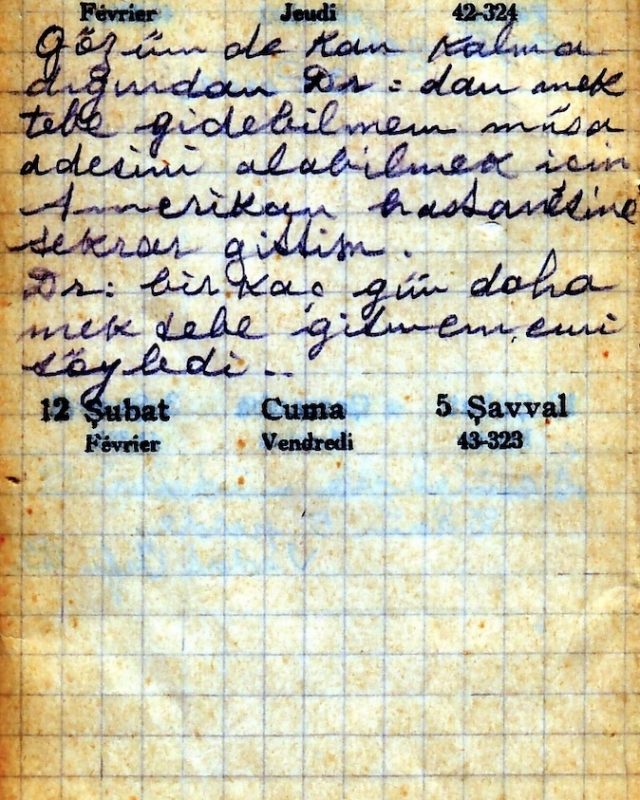 Février Jeudi 42-324
Gözüm de kan kalma
dığından Dr: dan mek
tebe gidebilmem müsa
adesini alabilmek için
Amerikan hastanesine
tekrar gittim.
Dr: bir kaç gün daha
mek tebe gitmememi
söyledi..
12 Şubat Cuma 5 Şavval
Février Vendredi 43-323